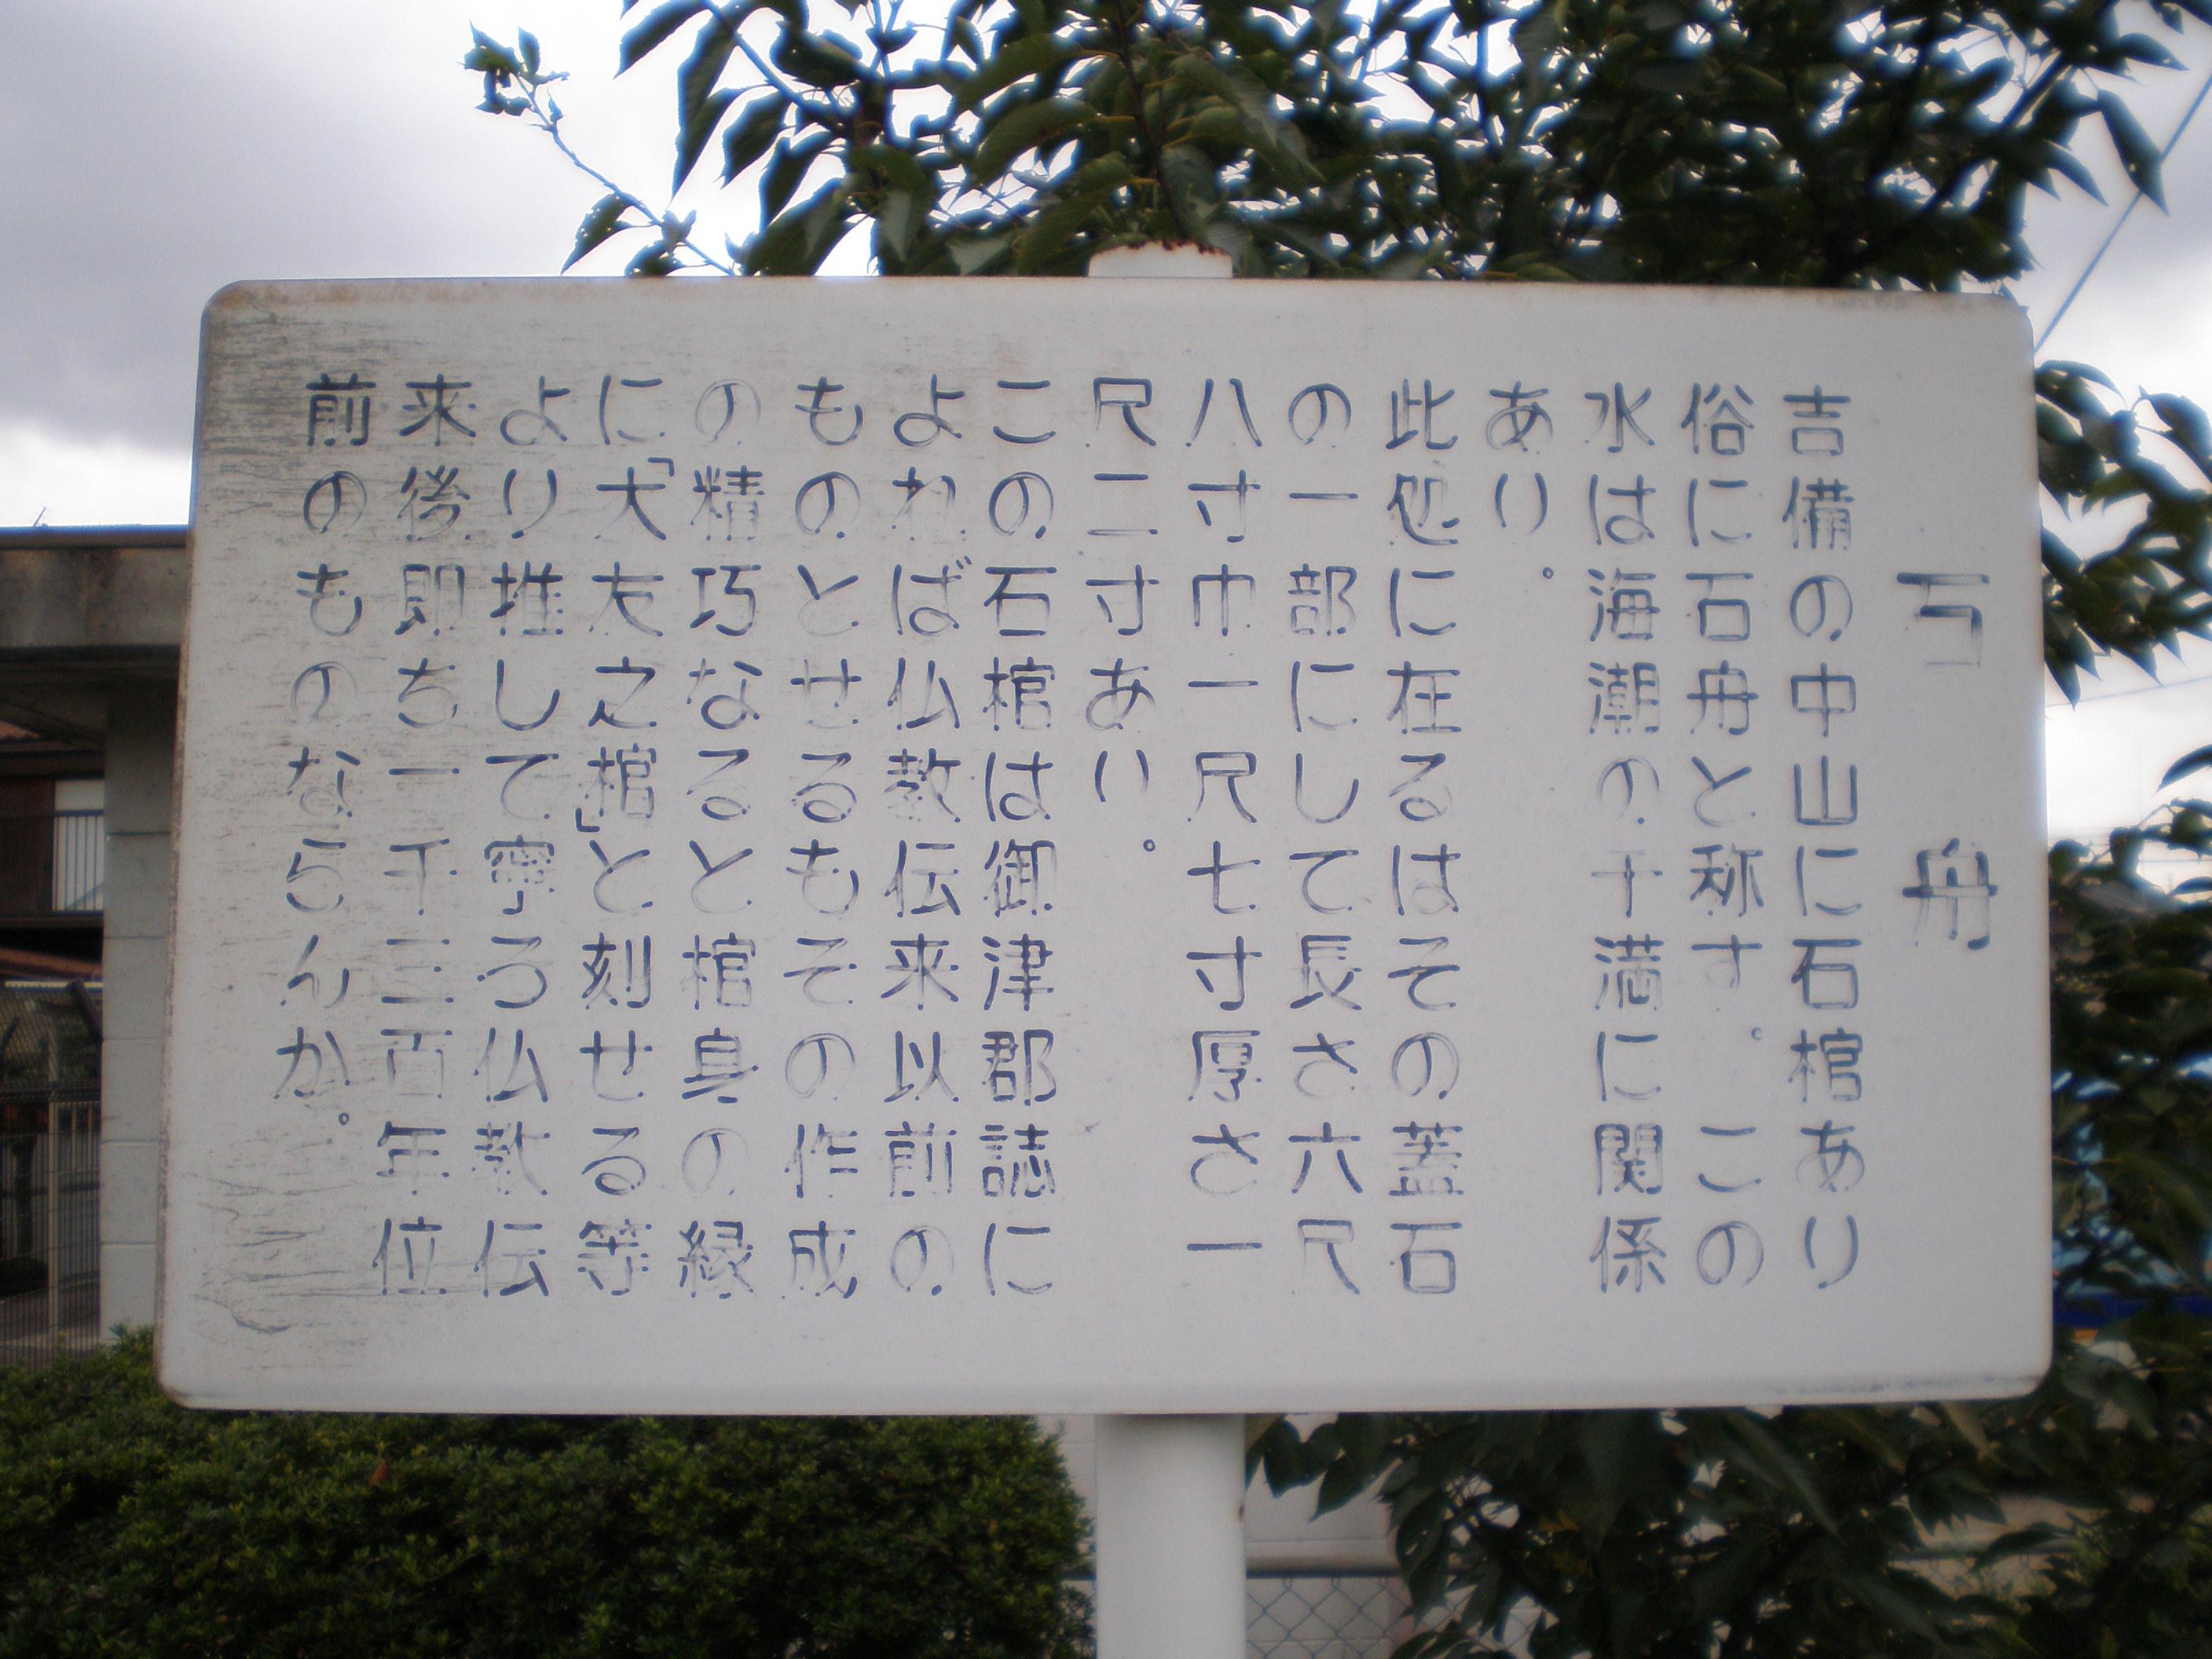 石舟
吉備の中山に石棺あり
俗に石舟と称す。この
水は海潮の干満に関係
あり。
此処に在るはその蓋石
の一部にして長さ六尺
八寸巾一尺七寸厚さ一
尺二寸あり。
この石棺は御津郡誌に
よれば仏教伝来以前の
ものとせるもその作成
の精巧なると棺身の縁
に「大友之棺」と刻せる等
より推して寧ろ仏教伝
来後即ち一千三百年位
前のものならんか。